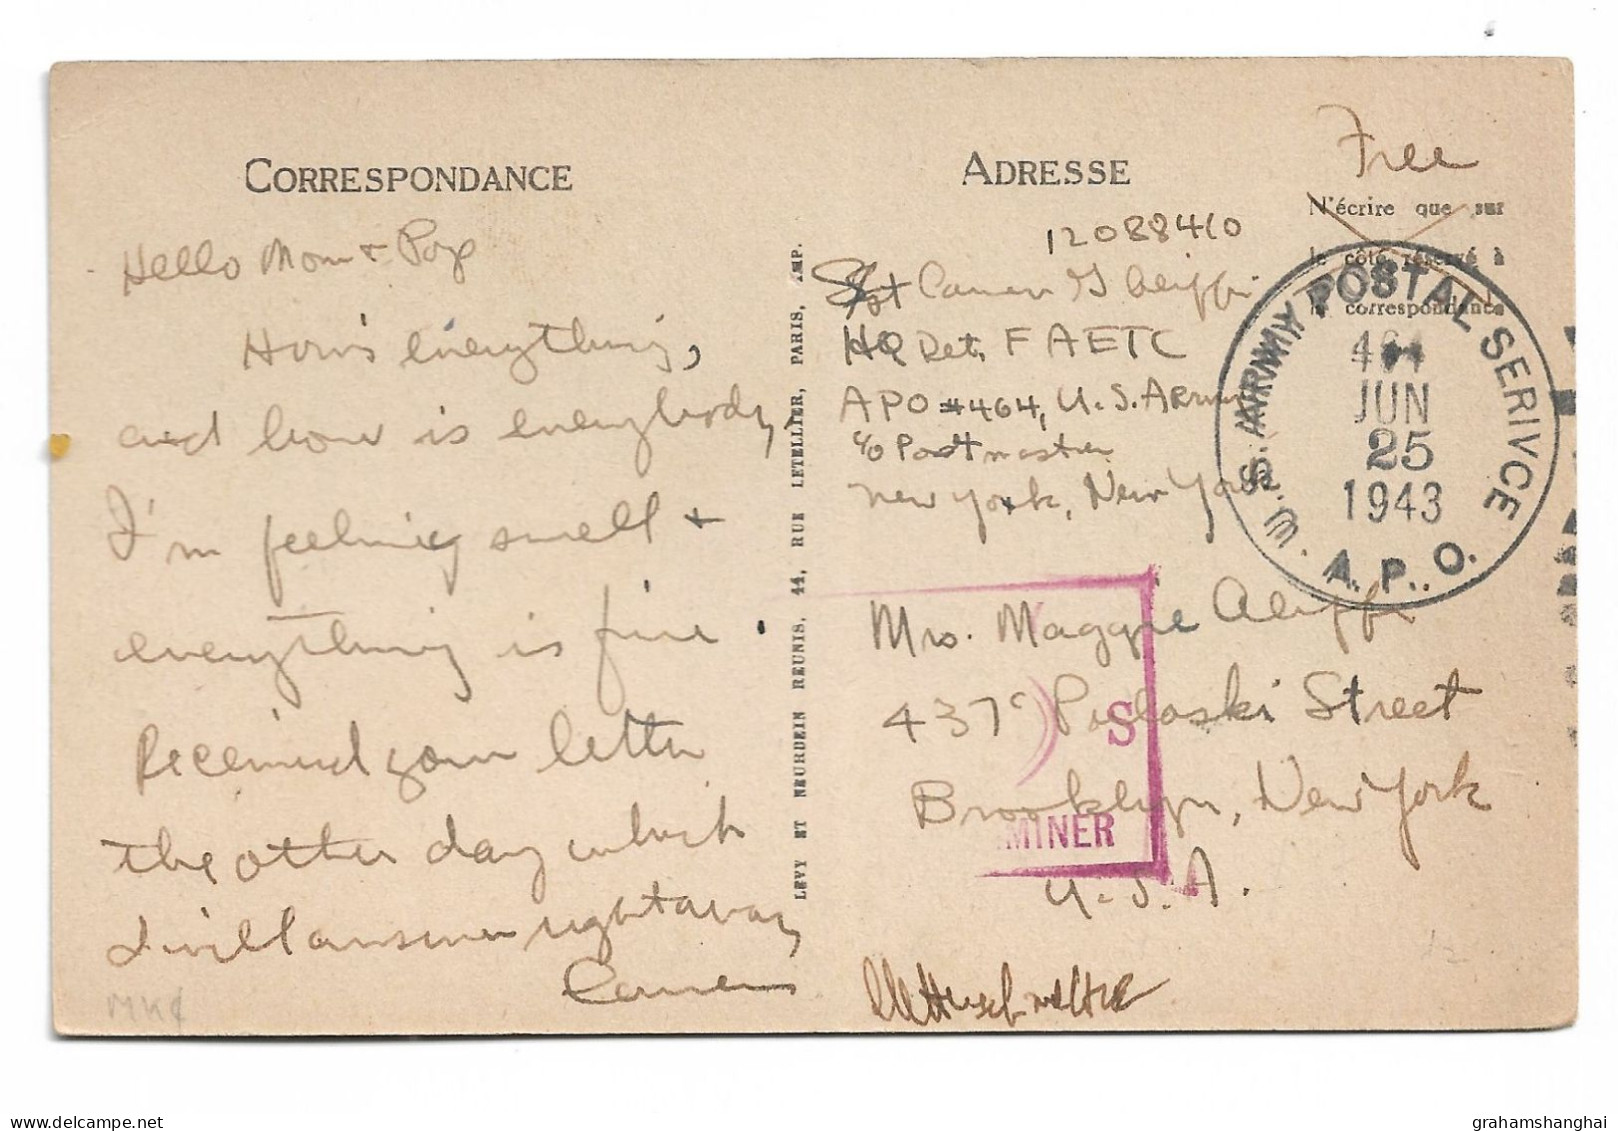 CORRESPONDANCE
Hello Mom & Pop
How's everything,
and how is everybody,
I'm feeling swell &
everything is fine
Received your letter
the other day which
I will answer right away,
Carmen
MK
LEVY ET NEURDEIN REUNIS, 44, RUE LETELLIER, PARIS, IMP.
ADRESSE
Free
N'écrire que sur
le côté réservé à
la correspondance
12088410
Sgt Carmen G Aliffi
HQ Det, F A E T C
A P O #464, U. S. Army
c/o Postmaster
New York, New York
U.S. ARMY POSTAL SERIVCE
464
JUN
25
1943
A.P.O.
Mrs. Maggie Aliffi
437 Pulaski Street
Brooklyn, New York
U. S. A.
S
MINER
grahamshanghai